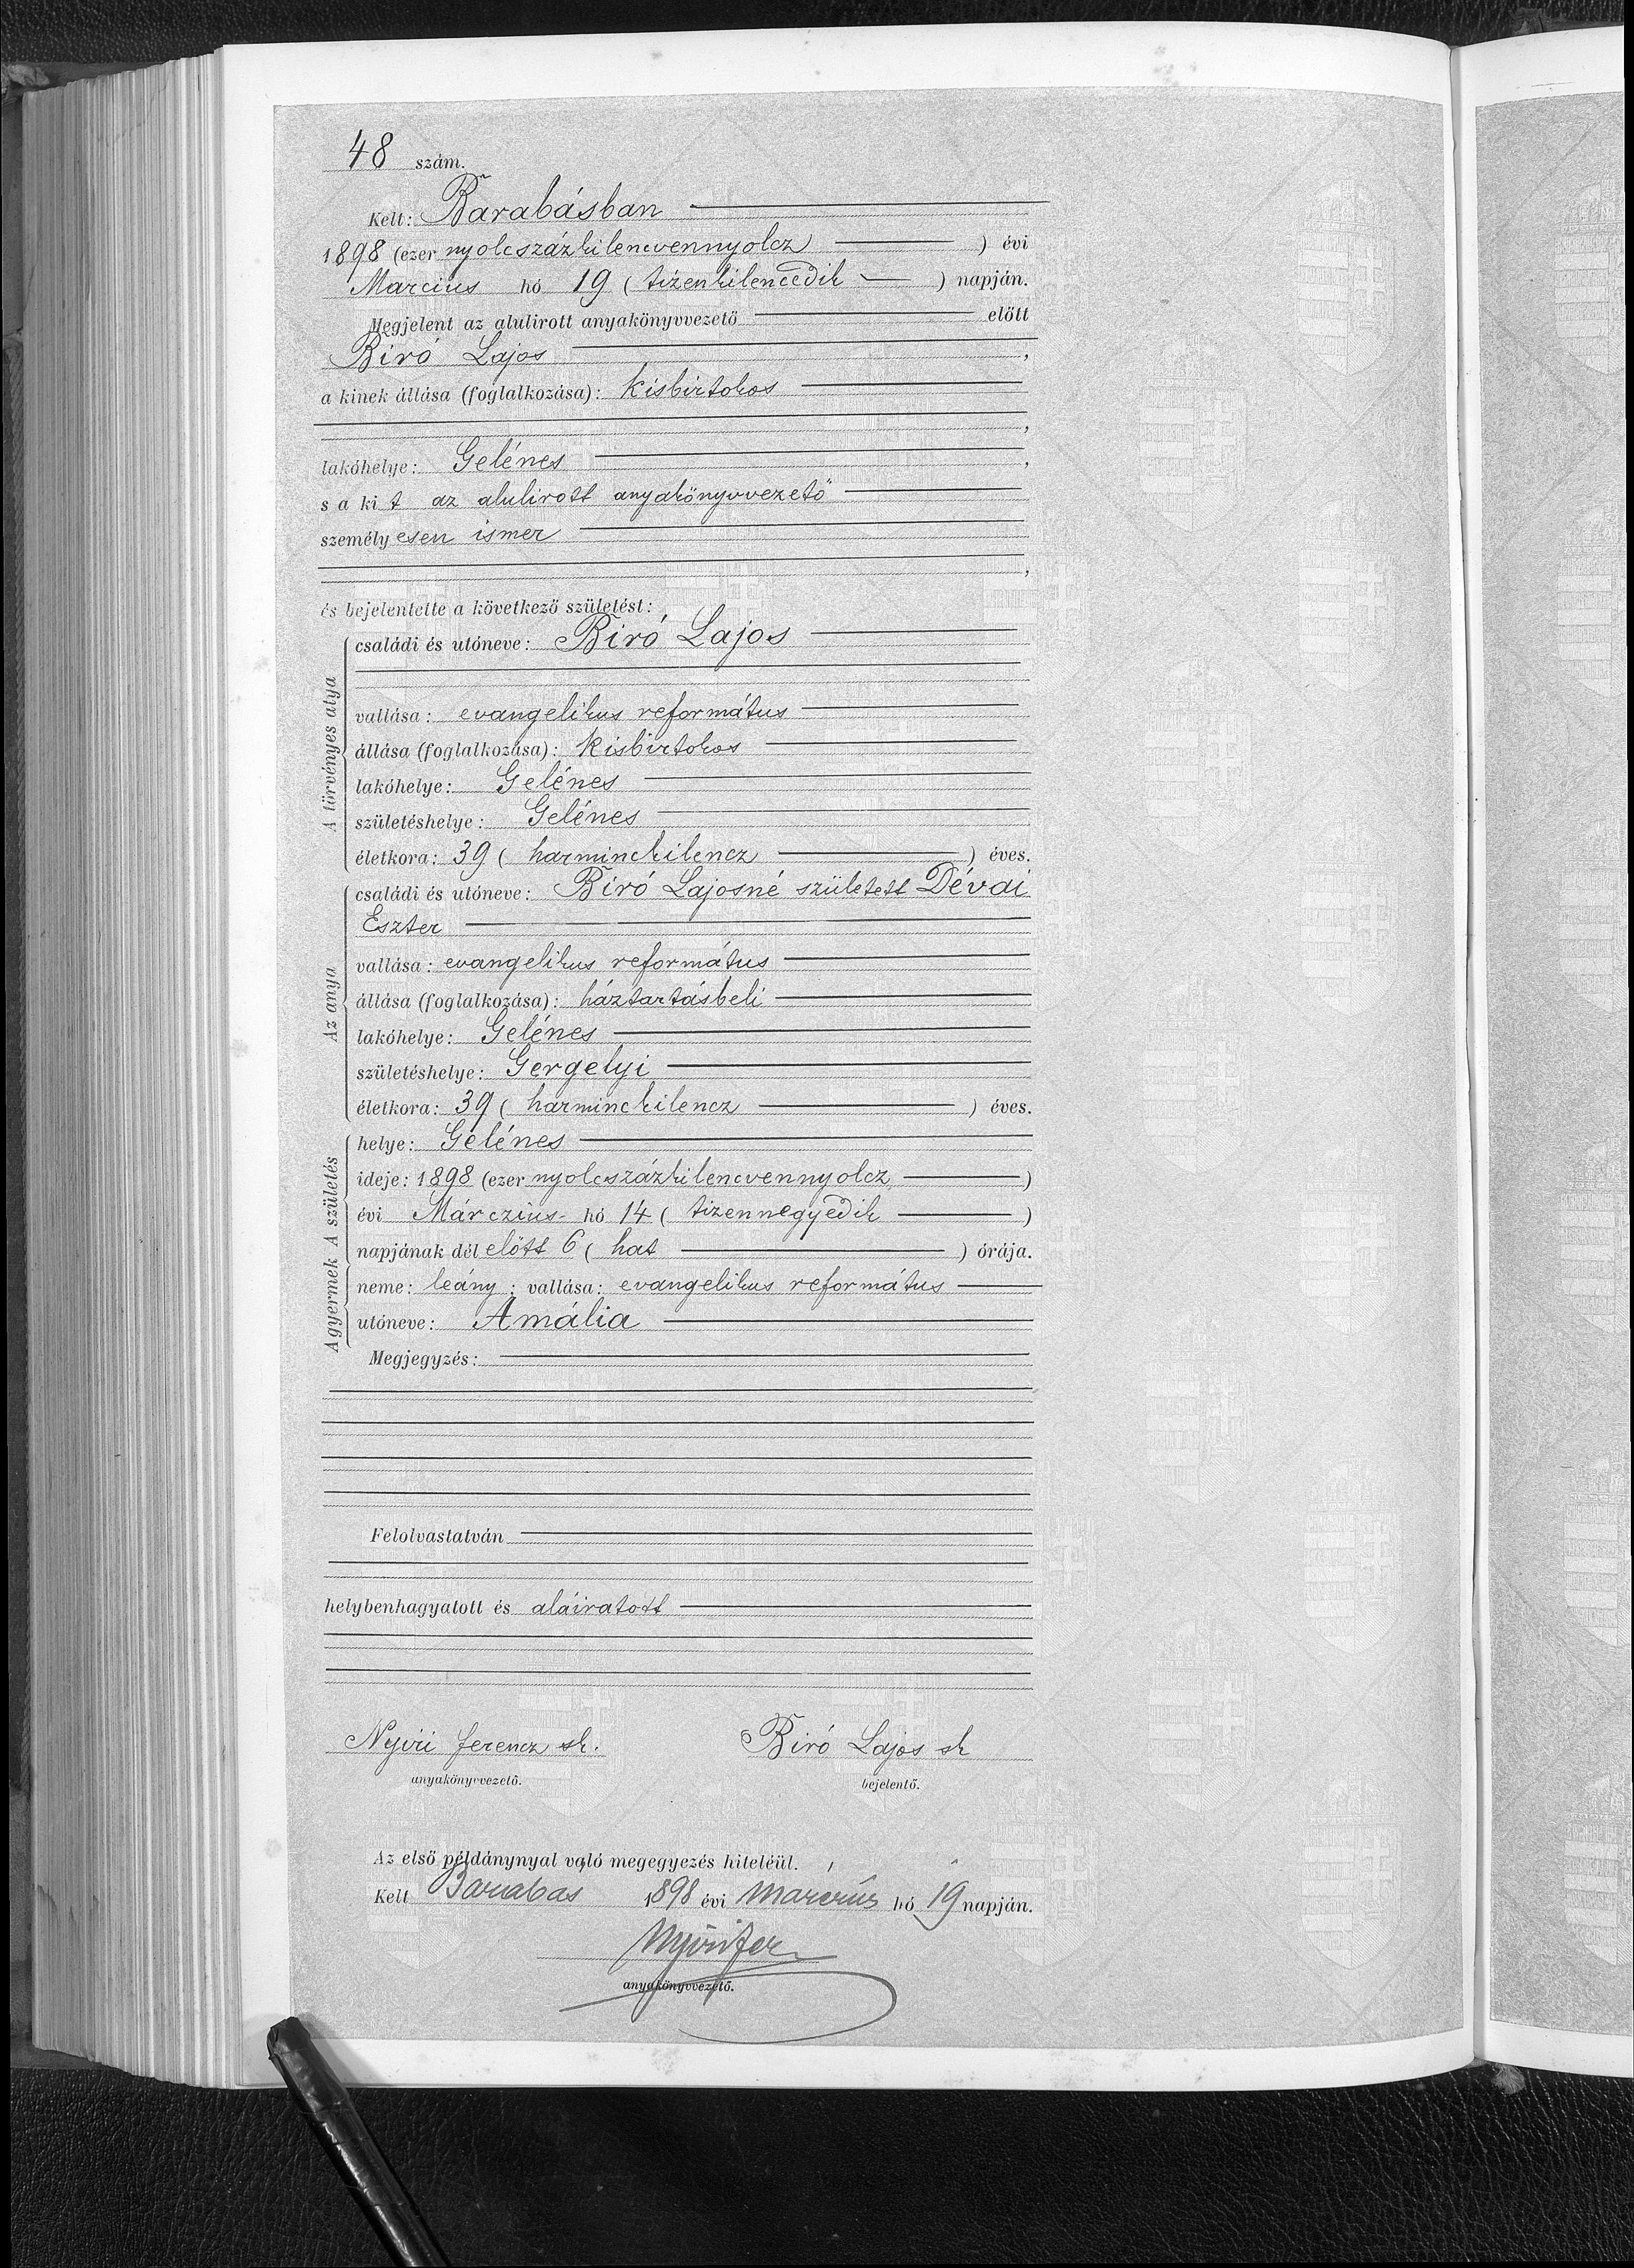 48 szám.
Kelt: Barabásban
1898 (ezer nyolcszázkilencvennyolcz) évi
Marcius hó 19 (tizenkilencedik) napján.
Megjelent az alulirott anyakönyvvezető előtt
Biró Lajos,
a kinek állása (foglalkozása): kisbirtokos
,
lakóhelye: Gelénes,
s a kit az alulirott anyakönyvvezető
személyesen ismer
,
és bejelentette a következő születést:
A törvényes atya
családi és utóneve: Biró Lajos
vallása: evangelikus református
állása (foglalkozása): Kisbirtokos
lakóhelye: Gelénes
születéshelye: Gelénes
életkora: 39 (harminckilencz) éves.
Az anya
családi és utóneve: Biró Lajosné született Dévai
Eszter
vallása: evangelikus református
állása (foglalkozása): háztartásbeli
lakóhelye: Gelénes
születéshelye: Gergelyi
életkora: 39 (harminckilencz) éves.
A születés
helye: Gelénes
ideje: 1898 (ezer nyolcszázkilencvennyolcz)
évi Márczius hó 14 (tizennegyedik)
napjának dél előtt 6 (hat) órája.
A gyermek
neme: leány; vallása: evangelikus református
utóneve: Amália
Megjegyzés:
Felolvastatván
helybenhagyatott és aláiratott
Nyiri Ferencz sk. Biró Lajos sk
anyakönyvvezető. bejelentő.
Az első példánynyal való megegyezés hiteléül.
Kelt Barabás 1898 évi Marcius hó 19 napján.
Nyiri Fer
anyakönyvvezető.